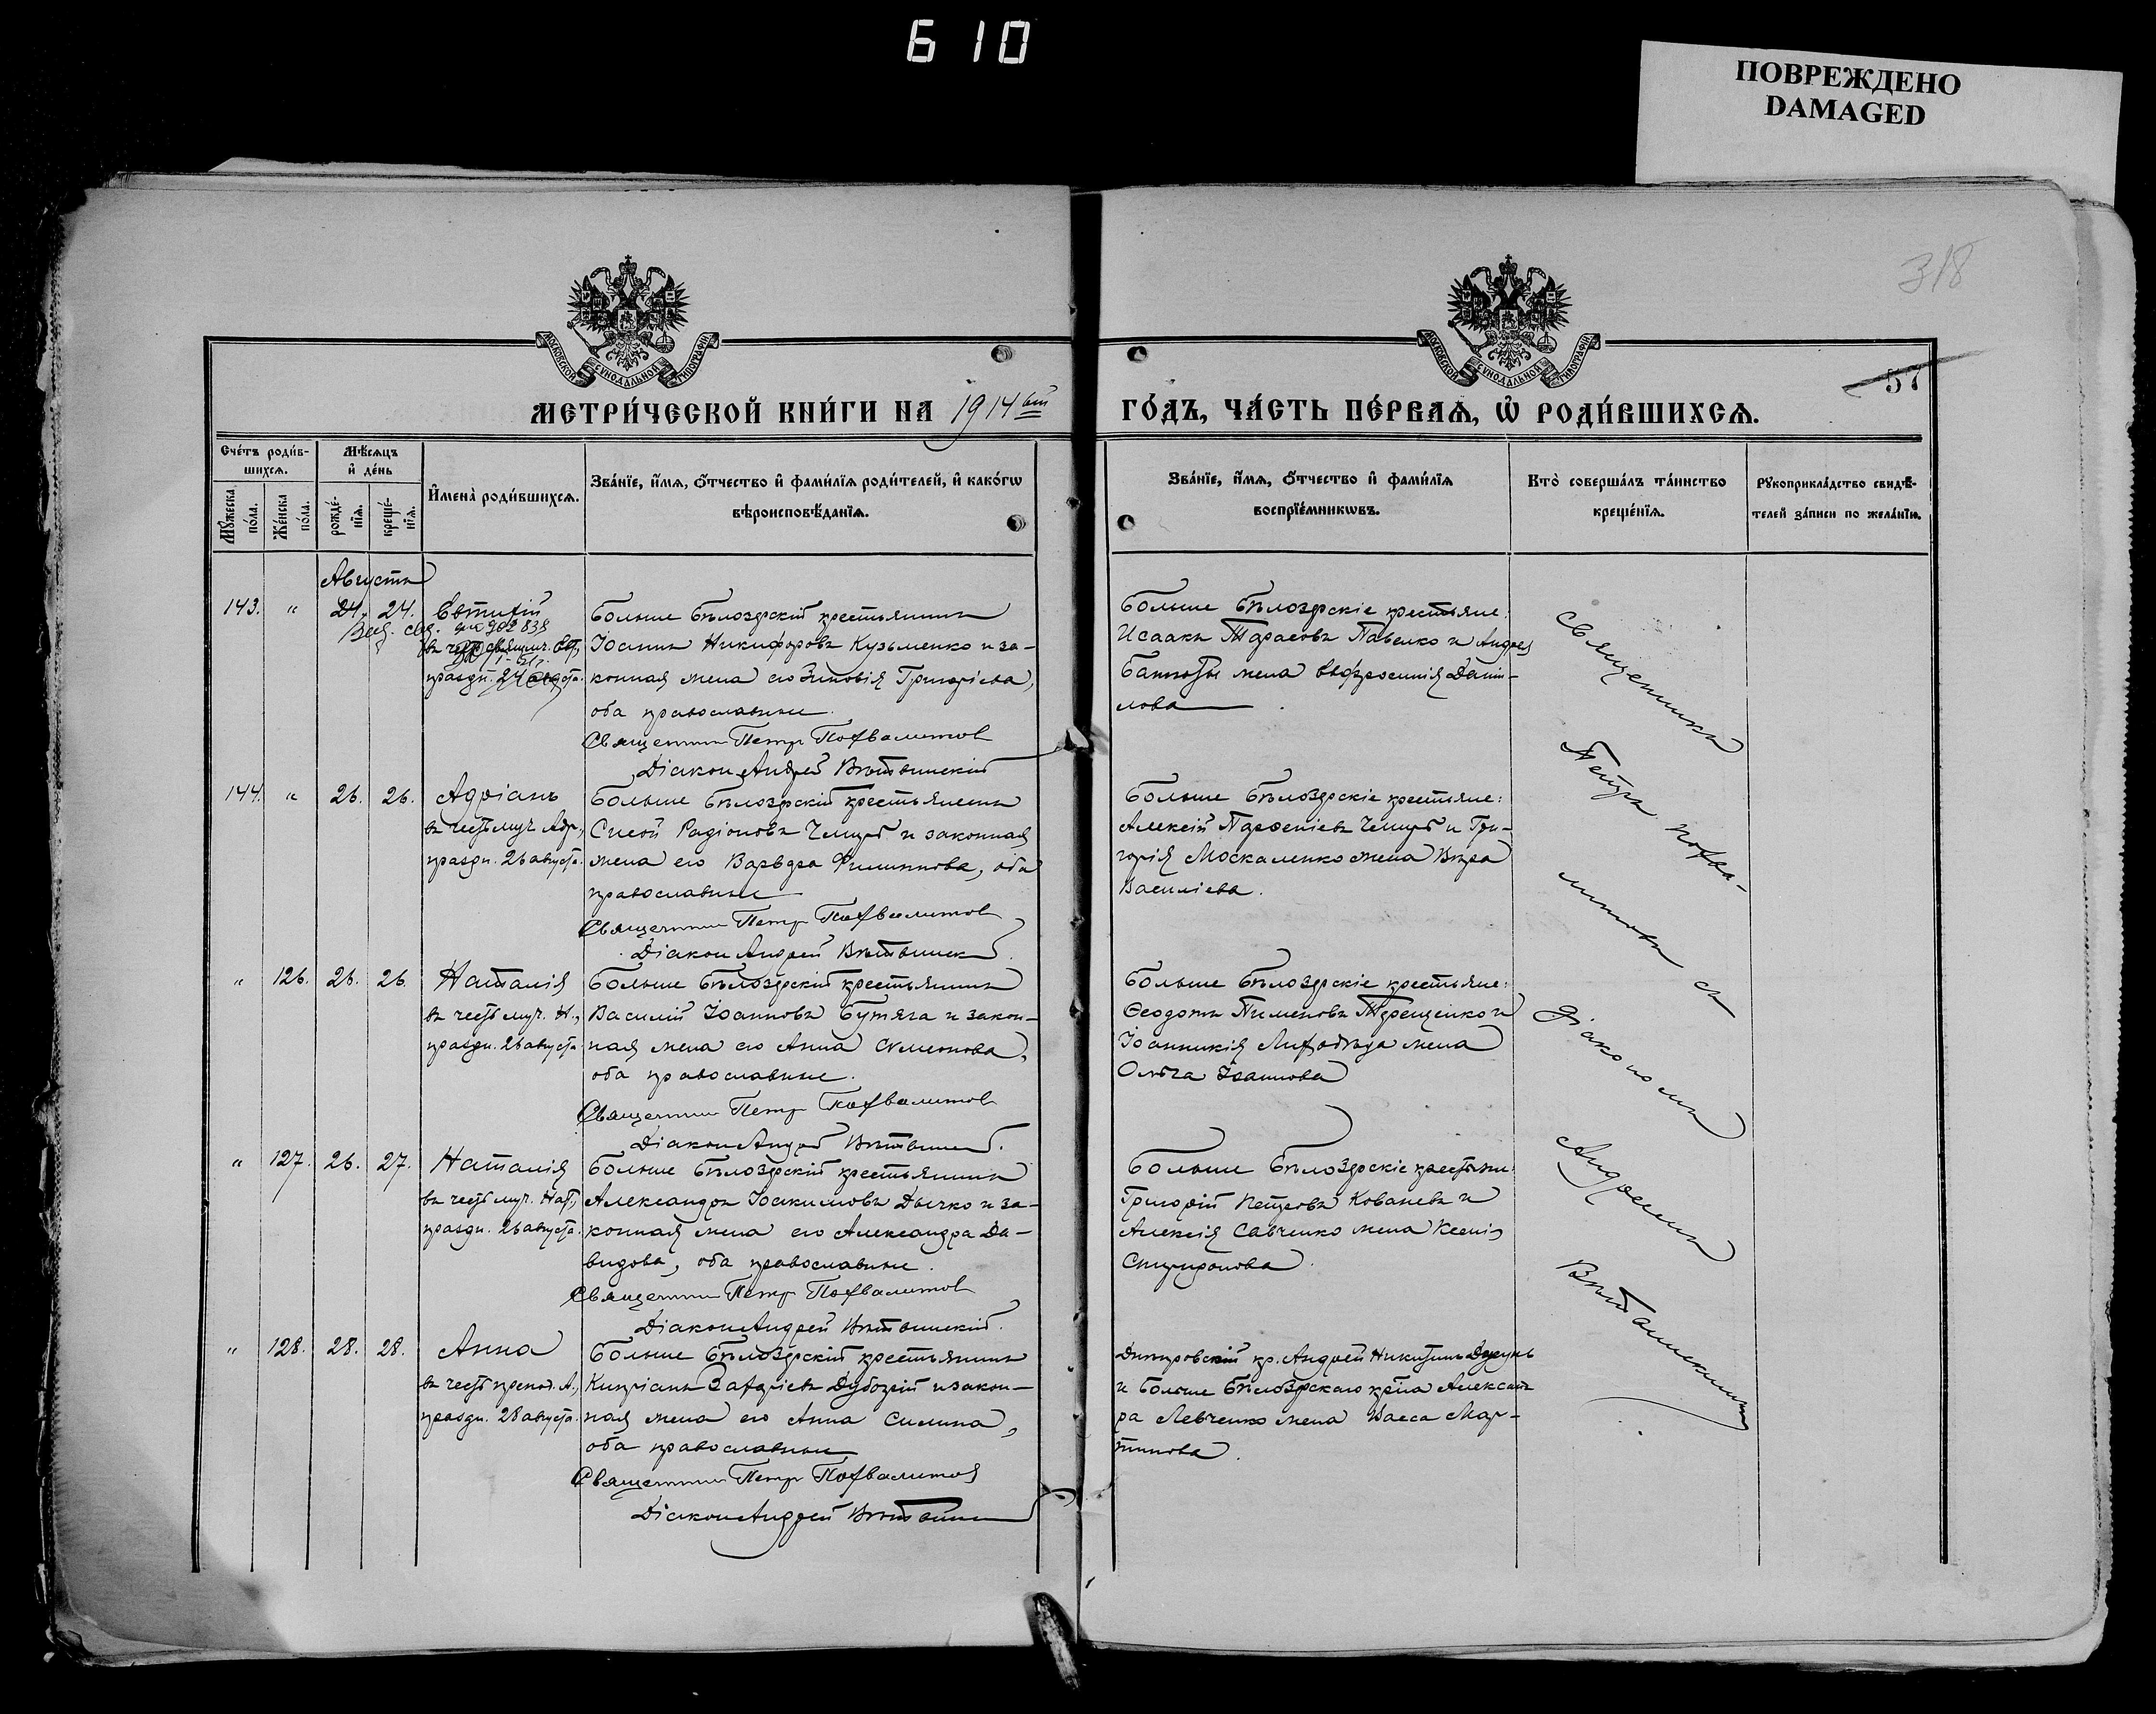 610
ПОВРЕЖДЕНО
DAMAGED
318
57
МОСКОВСКОЙ СѴНОДАЛЬНОЙ ТИПОГРАФІИ
МОСКОВСКОЙ СѴНОДАЛЬНОЙ ТИПОГРАФІИ
МЕТРИ́ЧЕСКОЙ КНИ́ГИ НА 1914ый ГО́ДЪ, ЧА́СТЬ ПЕ́РВАѦ, Ѡ҆ РОДИ́ВШИХСѦ.
Сче́тъ роди́в-
шихсѧ.
Мꙋ́жеска по́ла.
Же́нска по́ла.
Мѣ́сѧцъ
и҆ де́нь
рожде́-
нїѧ.
креще́-
нїѧ.
И҆мена̀ роди́вшихсѧ.
Зва́нїе, и҆́мѧ, ѻ҆́тчество и҆ фами́лїѧ роди́телей, и҆ како́гѡ
вѣроисповѣ́данїѧ.
Зва́нїе, и҆́мѧ, ѻ҆́тчество и҆ фами́лїѧ
воспрїе́мникѡвъ.
Кто̀ соверша́лъ та́инство
креще́нїѧ.
Рꙋкоприкла́дство свидѣ́-
телей за́писи по жела́нїю.
Августъ
143. " 24. 24. Евтихій
въ честь священмч. Евт.,
праздн. 24 августа.
Больше Бѣлозерскій крестьянинъ
Іоаннъ Никифоровъ Кузьменко и за-
конная жена его Зиновія Григоріева,
оба православные.
Священник Петр Похвалитов
Діакон Андрей Вѣтвинскій
Больше Бѣлозерскіе крестьяне:
Исаакъ Тарасовъ Павелко и Андрея
жена Евфросинія Дани-
лова.
144. " 26. 26. Адріанъ
въ честь муч. Адр.,
праздн. 26 августа.
Больше Бѣлозерскій крестьянинъ
Сисой Радіоновъ и законная
жена его Варвара Филиппова, оба
православные
Священник Петр Похвалитов
Діакон Андрей Вѣтвинск
Больше Бѣлозерскіе крестьяне:
Алексій Парфеніевъ и Гри-
горія Москаленко жена Вѣра
Василіева.
" 126. 26. 26. Наталія
въ честь муч. Н.,
праздн. 26 августа.
Больше Бѣлозерскій крестьянинъ
Василій Іоанновъ Бутяга и закон-
ная жена его Анна Симеонова,
оба православные.
Священник Петр Похвалитов
Діакон Андрей Вѣтвинск.
Больше Бѣлозерскіе крестьяне:
Ѳеодотъ Пименовъ Терещенко и
Іоанникія жена
Ольга Іоаннова
" 127. 26. 27. Наталія
въ честь муч. Нат.,
праздн. 26 августа.
Больше Бѣлозерскій крестьянинъ
Александръ Іоакимовъ Дычко и за-
конная жена его Александра Да-
видова, оба православные.
Священник Петр Похвалитов
Діакон Андрей Вѣтвинскій.
Больше Бѣлозерскіе крестьяне:
Григорій Петровъ Ковалевъ и
Алексія Савченко жена Ксенія
Спиридонова.
" 128. 28. 28. Анна
въ честь препод. А.,
праздн. 28 августа.
Больше Бѣлозерскій крестьянинъ
Кипріанъ и закон-
ная жена его Анна Силина,
оба православные
Священник Петр Похвалитов
Діакон Андрей Вѣтвинск
Днѣпровскій кр. Андрей Никитинъ
и Больше Бѣлозерскаго кр-на Александ-
ра Левченко жена Васса Мар-
тинова.
Священникъ
Петръ Похва-
литовъ съ
діакономъ
Андреемъ
Вѣтвинскимъ